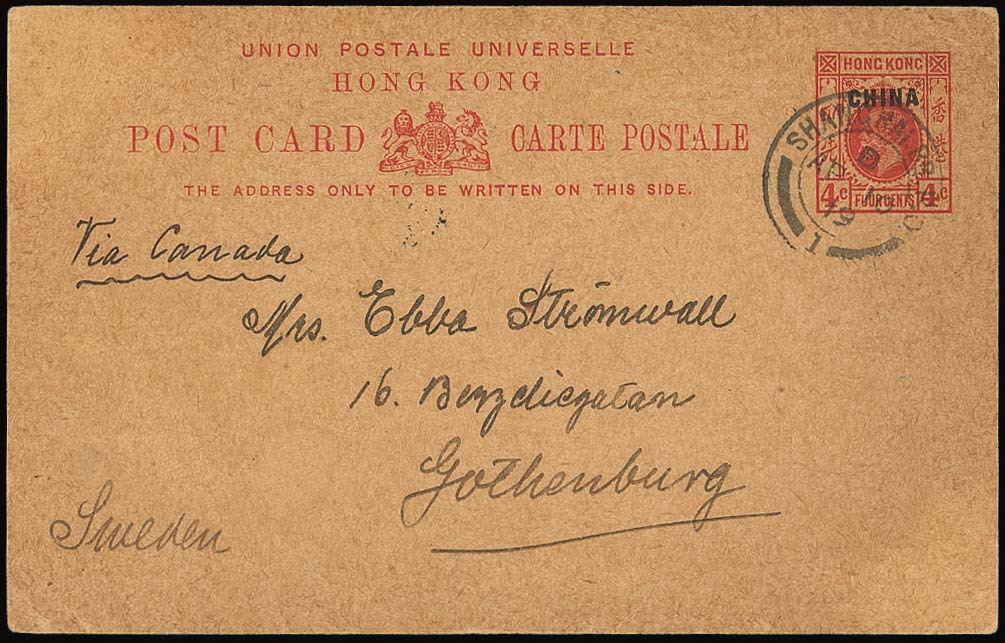 UNION POSTALE UNIVERSELLE
HONG KONG
POST CARD CARTE POSTALE
THE ADDRESS ONLY TO BE WRITTEN ON THIS SIDE.
HONG KONG
CHINA
香港
4c FOUR CENTS 4c
SHANGHAI B.P.O.
D
AP
19
1
Via Canada
Mrs. Ebba Strömwall
16. Berzeliigatan
Gothenburg
Sweden